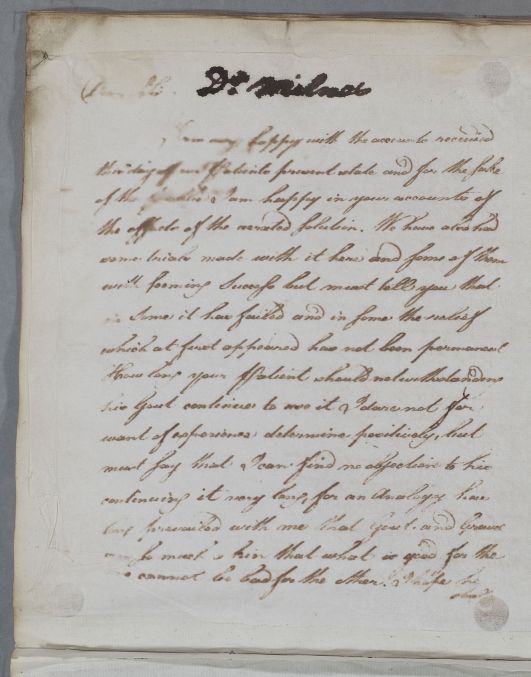 Dear Sir. Dr. Milnes
I am very happy with the accounts received
this day of our Patients present state and for the sake
of the I am happy in your accounts of
the effects of the aerated solution. We have also had
some trials made with it here and some of them
with seeming success but must tell you that
in some it has failed and in some the relief
which at first appeared has not been permanent
How long your Patient should notwithstanding
his Gout continue to use it I dare not for
want of experience determine positively, but
must say that I can find no objection to his
continuing it very long, for an Analogy has
long prevailed with me that Gout and Gravel
so much a kin that what is good for the
cannot be bad for the other. I hope he